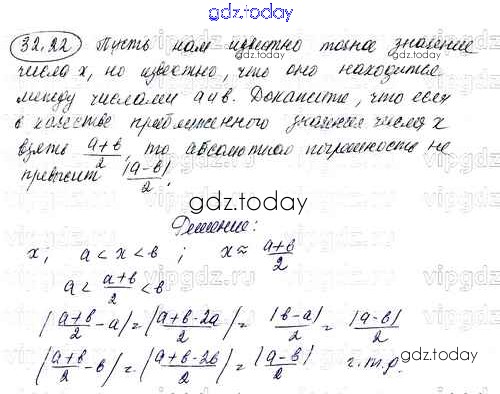 gdz.today
32.22 Пусть нам известно точное значение
числа x, но известно, что оно находится
между числами a и в. Докажите, что если
в качестве приближенного значения числа x
взять (a+в)/2, то абсолютная погрешность не
превысит |a-в|/2.
gdz.today
Решение:
x; a < x < в ; x ≈ (a+в)/2
a < (a+в)/2 < в
|(a+в)/2 - a| = |(a+в-2a)/2| = |в-a|/2 = |a-в|/2
gdz.today
|(a+в)/2 - в| = |(a+в-2в)/2| = |a-в|/2 ч.т.д.